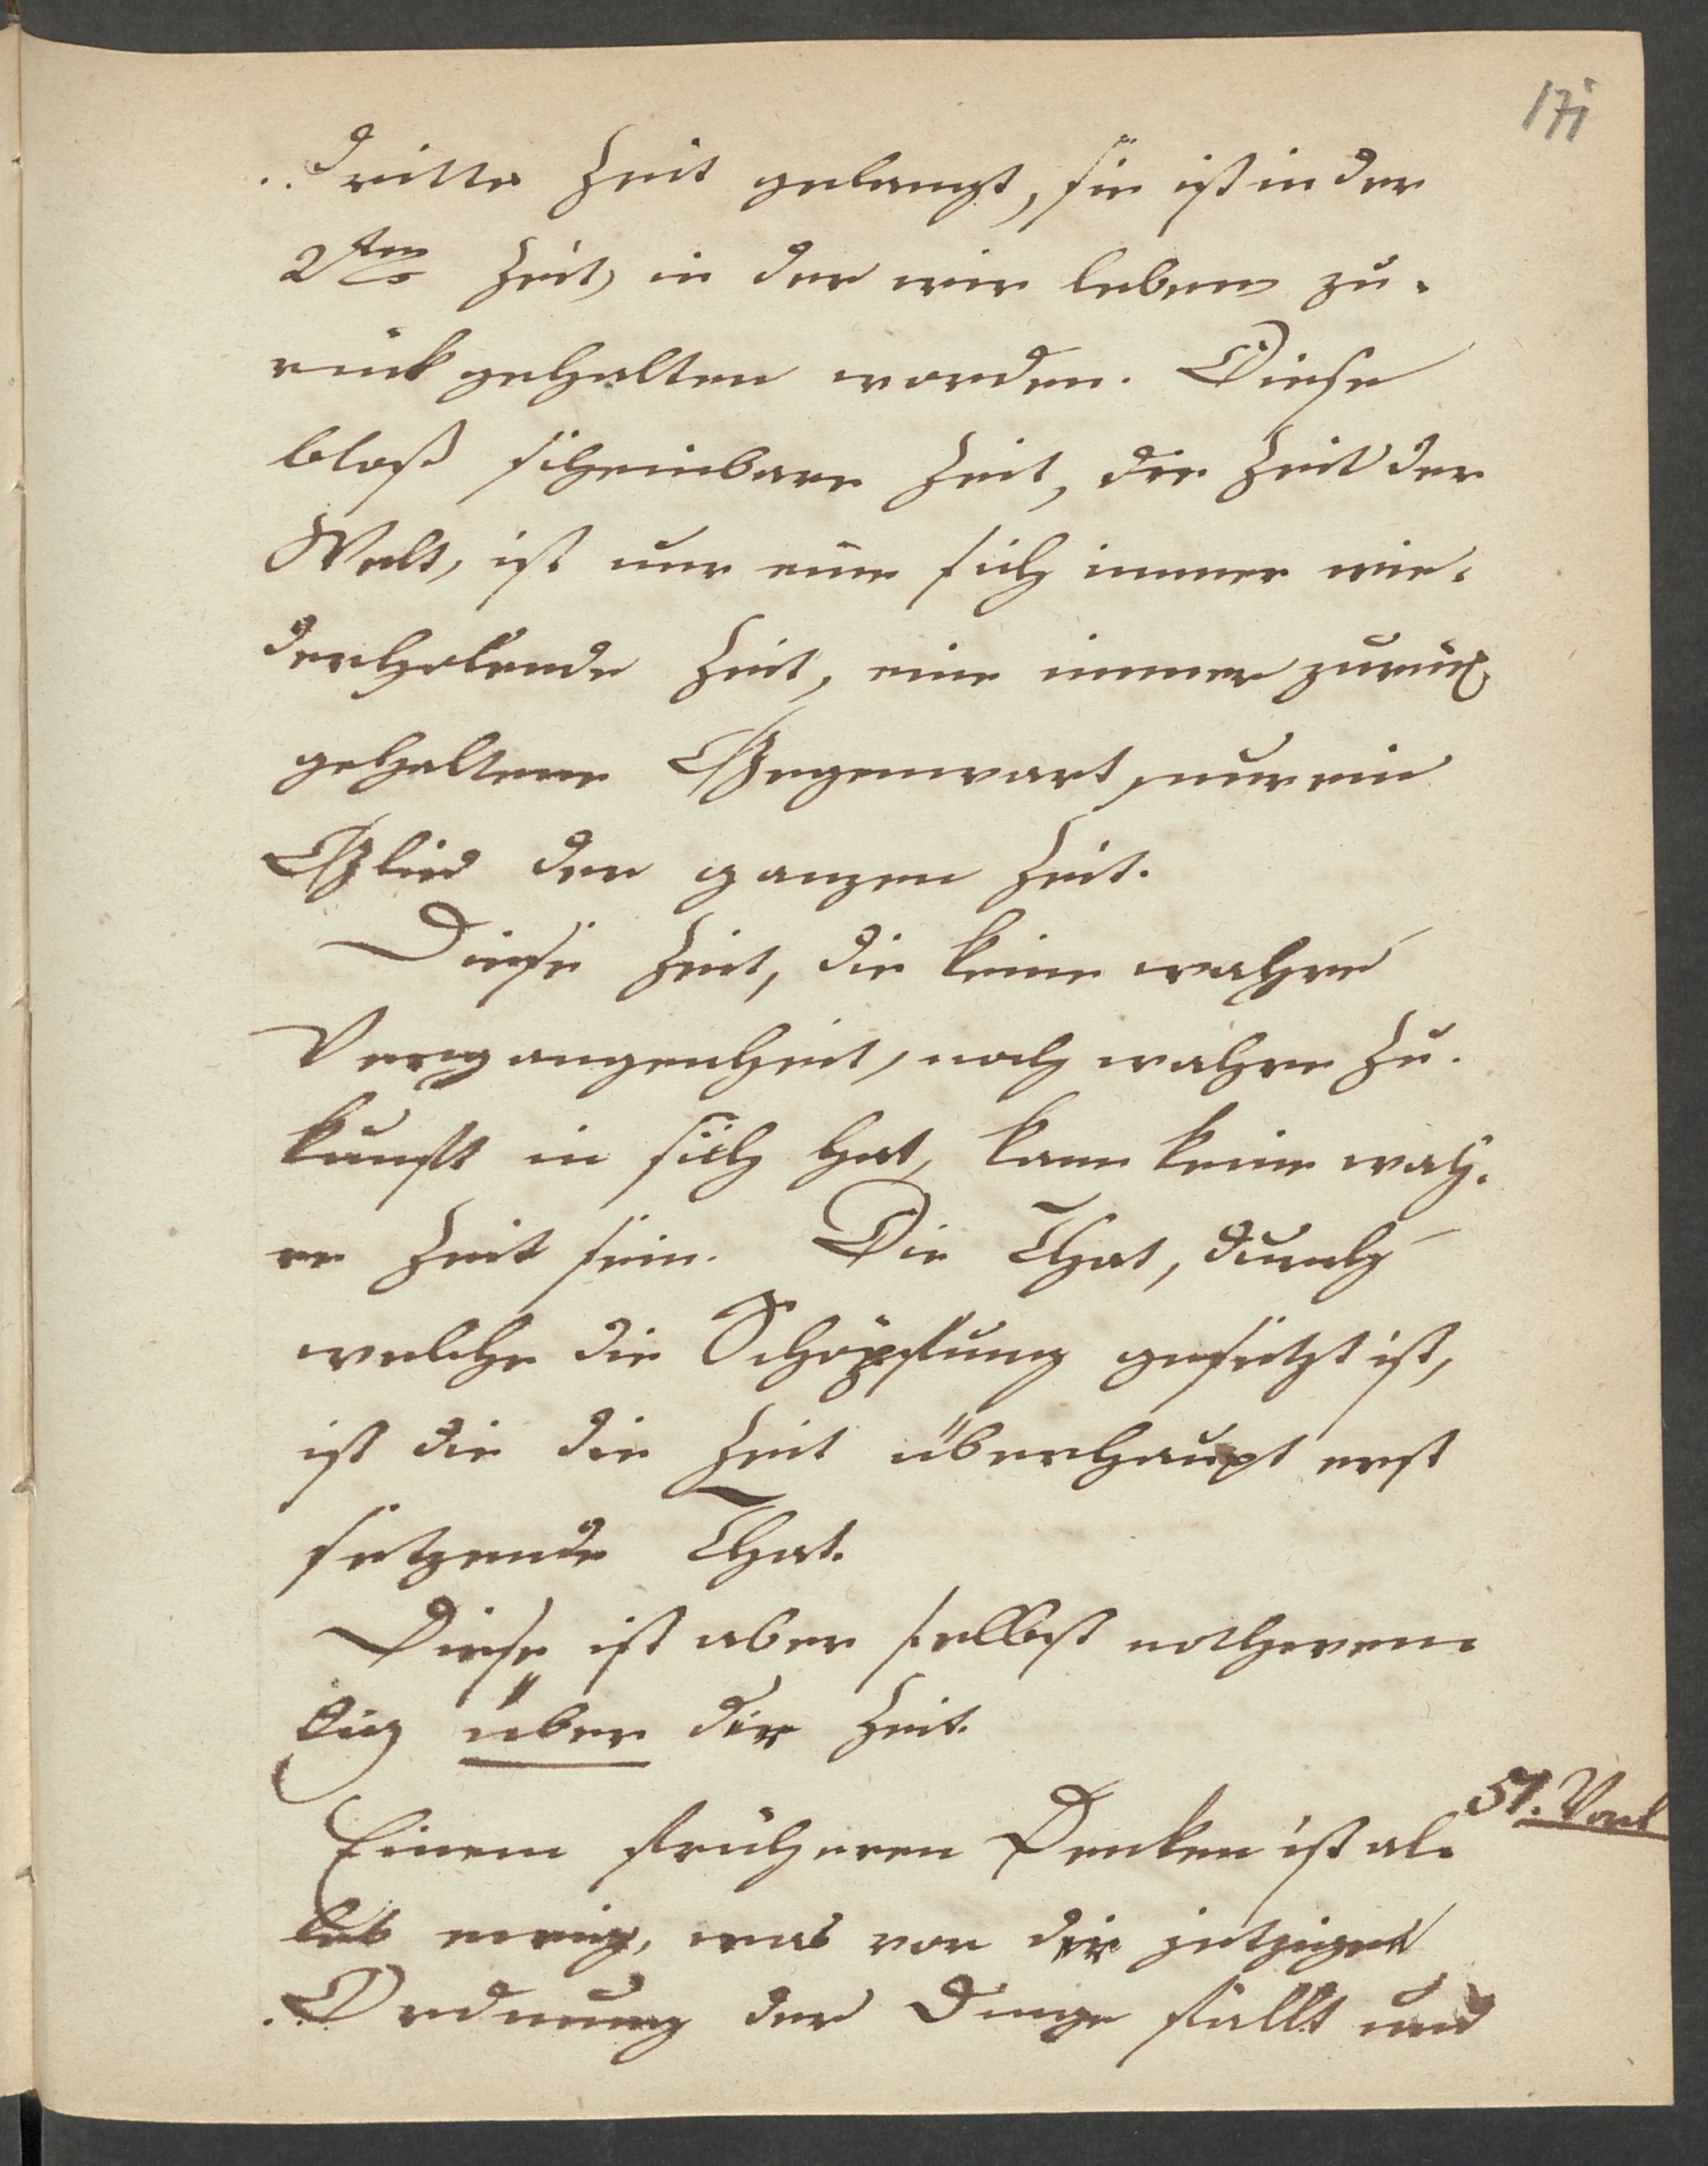 171
dritte Zeit gelangt, sie ist in der
2ten Zeit, in der wir leben zu-
rückgehalten worden. Diese
bloß scheinbare Zeit, die Zeit der
Welt, ist nur eine sich immer wie-
derholende Zeit, eine immer zurück
gehaltene Gegenwart, nur ein
Glied der ganzen Zeit.
Diese Zeit, die keine wahre
Vergangenheit, noch wahre Zu-
kunft in sich hat, kann keine wah-
re Zeit sein. Die That, durch
welche die Schöpfung gesetzt ist,
ist die die Zeit überhaupt erst
setzende That.
Diese ist aber selbst nothwen-
dig über der Zeit.
51. Vorl
Einem früheren Denken ist al-
les ewig, was vor die jetzige
Ordnung der Dinge fällt und